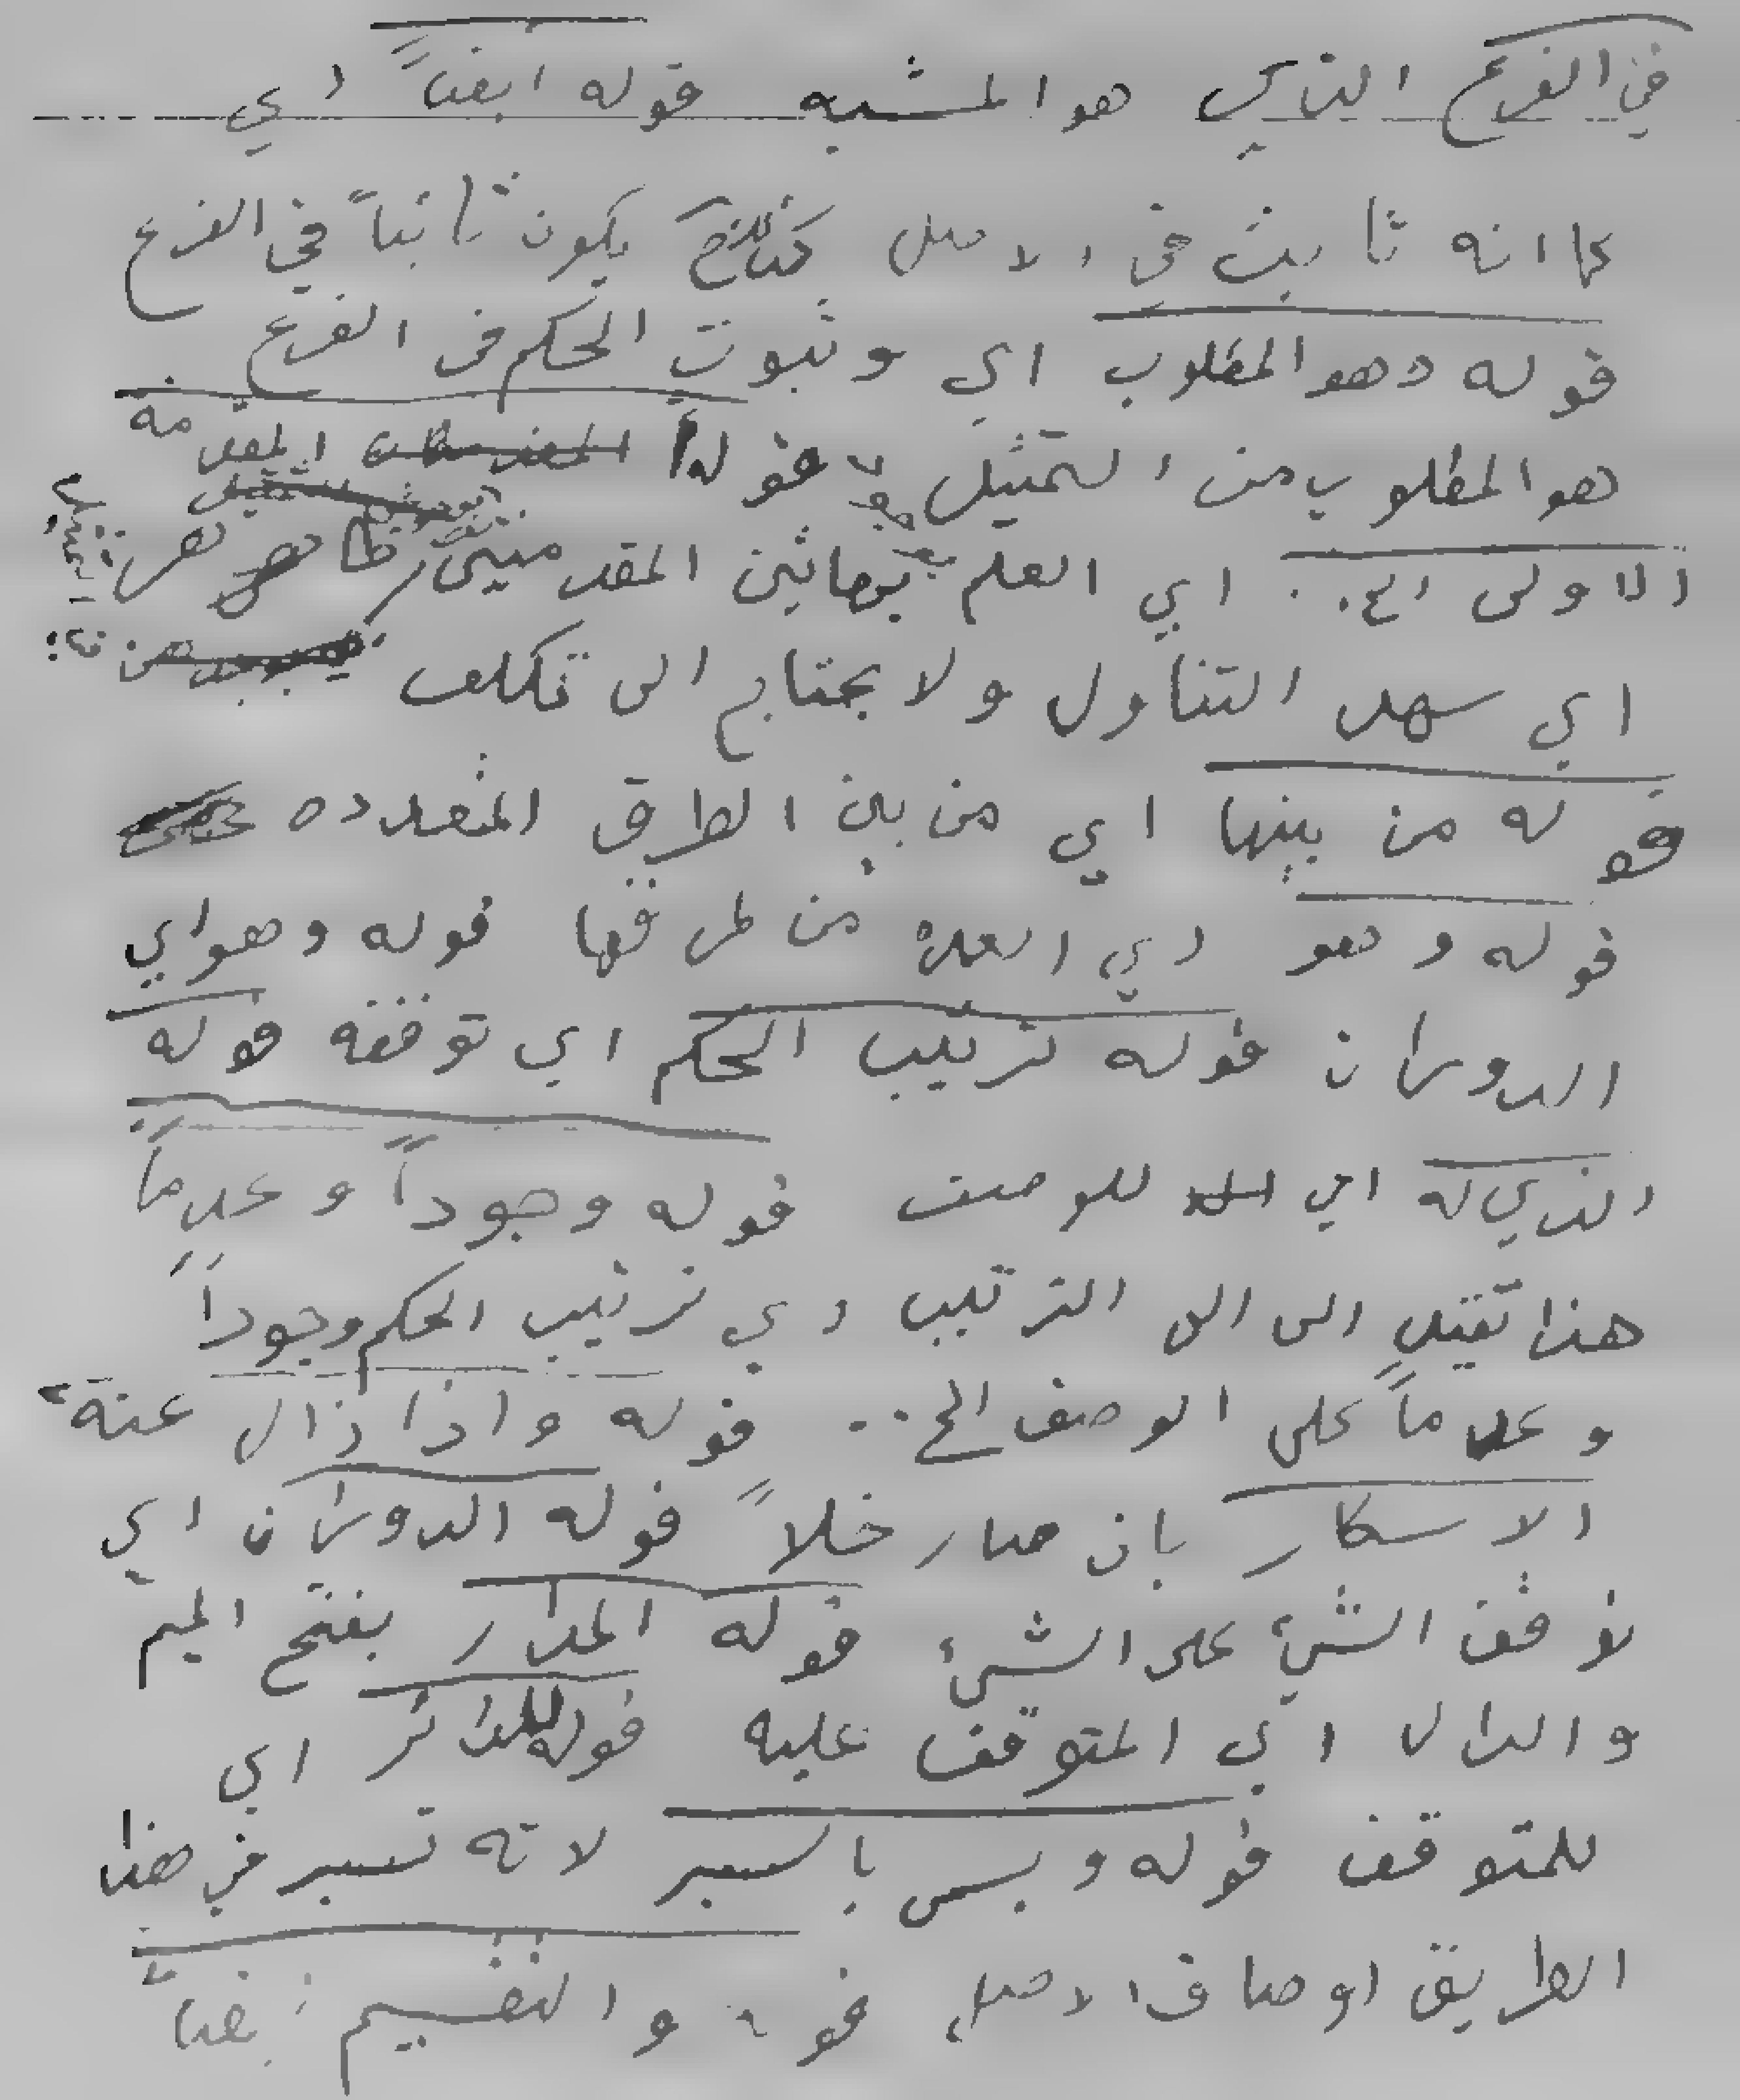 في الفرع الذي هو المشبه قوله ايضاً اي
كما انه ثابت في الاصل كذلك يكون ثابتاً في الفرع
قوله وهو المطلوب اي وثبوت الحكم في الفرع
هو المطلوب من التمثيل قوله المقدمة
الاولى الخ.. اي العلم بهاتين المقدمتين ظاهر
اي سهل التناول ولا يحتاج الى تكلف
قوله من بينها اي من بين الطرق المتعدده
قوله وهو اي العمده من طرقها قوله وهو اي
الدوران قوله ترتيب الحكم اي توقفه قوله
الذي له اي للوصف قوله وجوداً وعدماً
هذا تقييد الى الى الترتيب اي ترتيب الحكم وجوداً
وعدماً على الوصف الخ.. قوله واذا زال عنه
الاسكار بان صار خلاً قوله الدوران اي
توقف الشيء على الشيء قوله المدار بفتح الميم
والدال اي المتوقف عليه قوله للدائر اي
للمتوقف قوله ويسمى بالسبر لانه تسبر في هذا
الطريق اوصاف الاصل قوله والتقسيم ايضاً